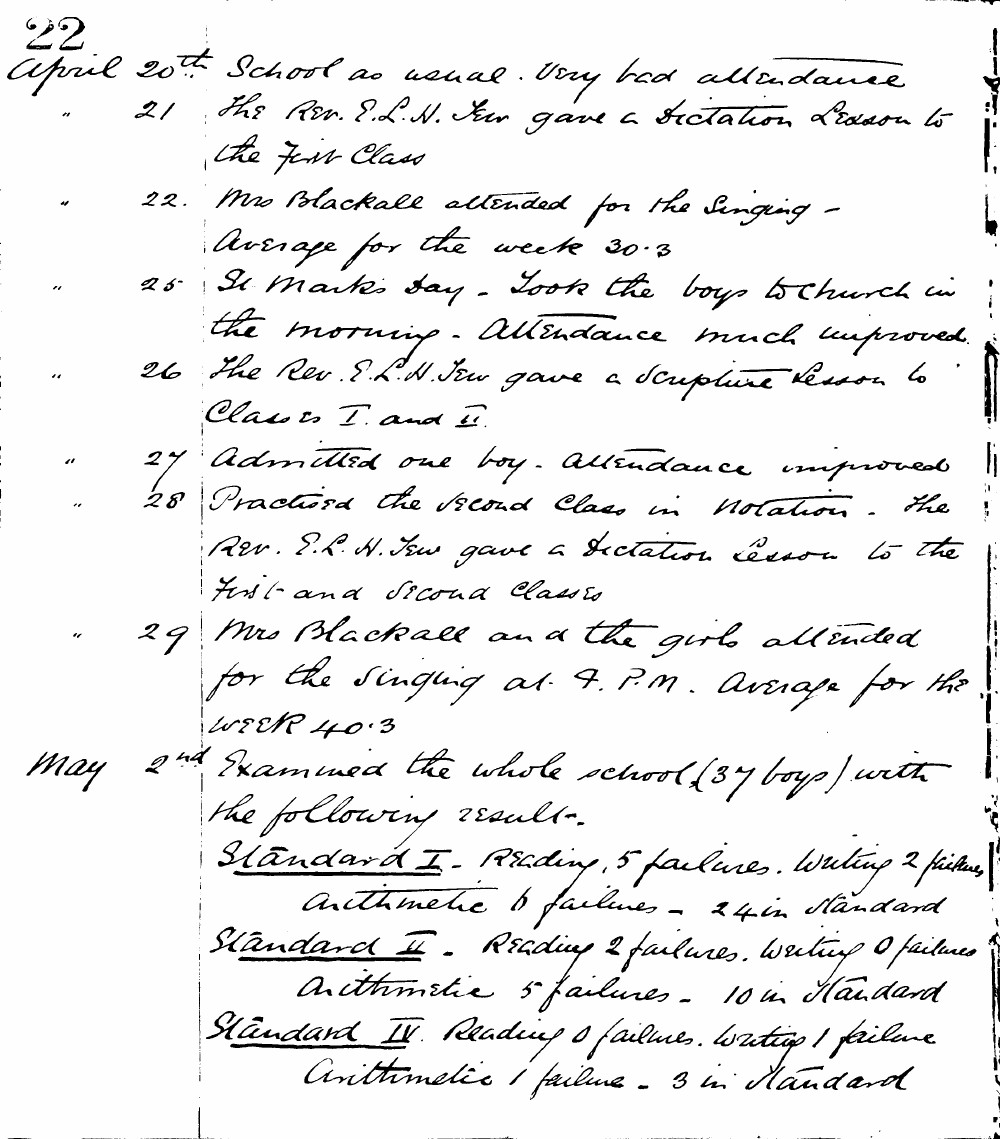 22
April 20th School as usual. Very bad attendance
" 21 The Rev. E.L.H. Tew gave a Dictation Lesson to
the First Class
" 22. Mrs Blackall attended for the Singing -
Average for the week 30.3
" 25 St Mark's Day - Took the boys to Church in
the morning - Attendance much improved.
" 26 The Rev. E.L.H. Tew gave a Scripture Lesson to
Classes I. and II.
" 27 Admitted one boy - Attendance improved
" 28 Practised the Second Class in Notation - The
Rev. E.L.H. Tew gave a Dictation Lesson to the
First and Second Classes
" 29 Mrs Blackall and the girls attended
for the Singing at 4. P.M. Average for the
week 40.3
May 2nd Examined the whole school (37 boys) with
the following result-.
Standard I - Reading, 5 failures. Writing 2 failures
Arithmetic 6 failures - 24 in Standard
Standard II - Reading 2 failures. Writing 0 failures
Arithmetic 5 failures - 10 in Standard
Standard IV. Reading 0 failures. Writing 1 failure
Arithmetic 1 failure - 3 in Standard